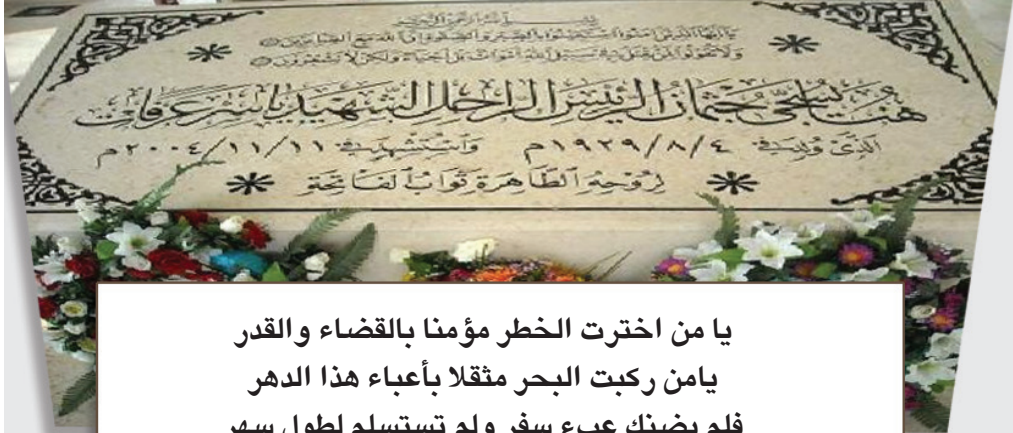 بسم الله الرحمن الرحيم
يا أيها الذين آمنوا استعينوا بالصبر والصلاة إن الله مع الصابرين
ولا تقولوا لمن يقتل في سبيل الله أموات بل أحياء ولكن لا تشعرون
هنا يسجى جثمان الرئيس الراحل الشهيد ياسر عرفات
الذي ولد في ١٩٢٩/٨/٤م واستشهد في ٢٠٠٤/١١/١١م
لروحه الطاهرة ثواب الفاتحة
يا من اخترت الخطر مؤمنا بالقضاء والقدر
يامن ركبت البحر مثقلا بأعباء هذا الدهر
فلم يضنك عبء سفر ولم تستسلم لطول سهر